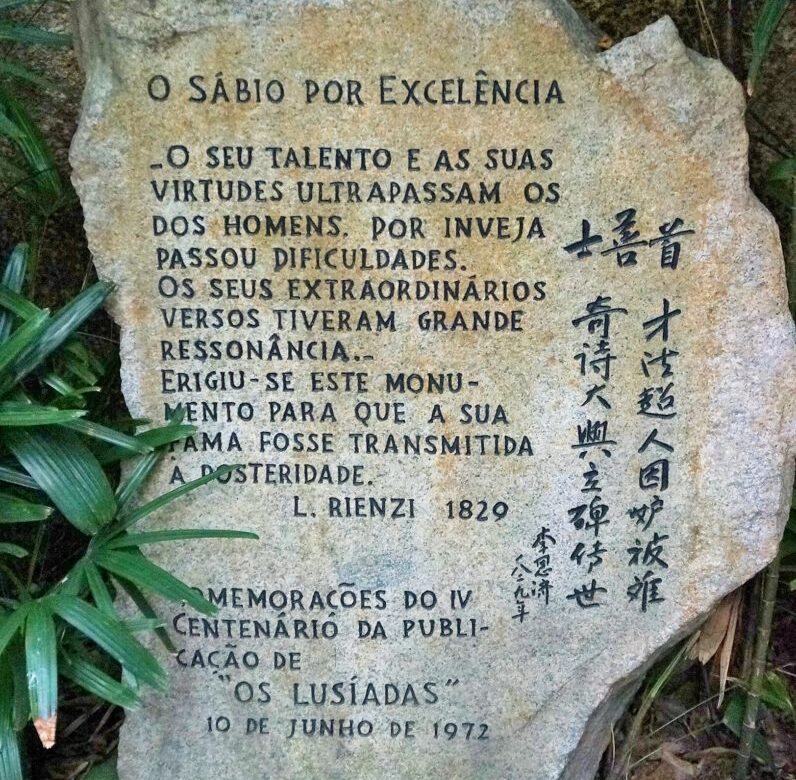 O SÁBIO POR EXCELÊNCIA
-O SEU TALENTO E AS SUAS
VIRTUDES ULTRAPASSAM OS
DOS HOMENS. POR INVEJA
PASSOU DIFICULDADES.
OS SEUS EXTRAORDINÁRIOS
VERSOS TIVERAM GRANDE
RESSONÂNCIA.-
ERIGIU-SE ESTE MONU-
MENTO PARA QUE A SUA
FAMA FOSSE TRANSMITIDA
A POSTERIDADE.
L. RIENZI 1829
COMEMORAÇÕES DO IV
CENTENÁRIO DA PUBLI-
CAÇÃO DE
"OS LUSÍADAS"
10 DE JUNHO DE 1972
首善士
才法超人因妒被难
奇诗大興立碑传世
李恩济
一八二九年